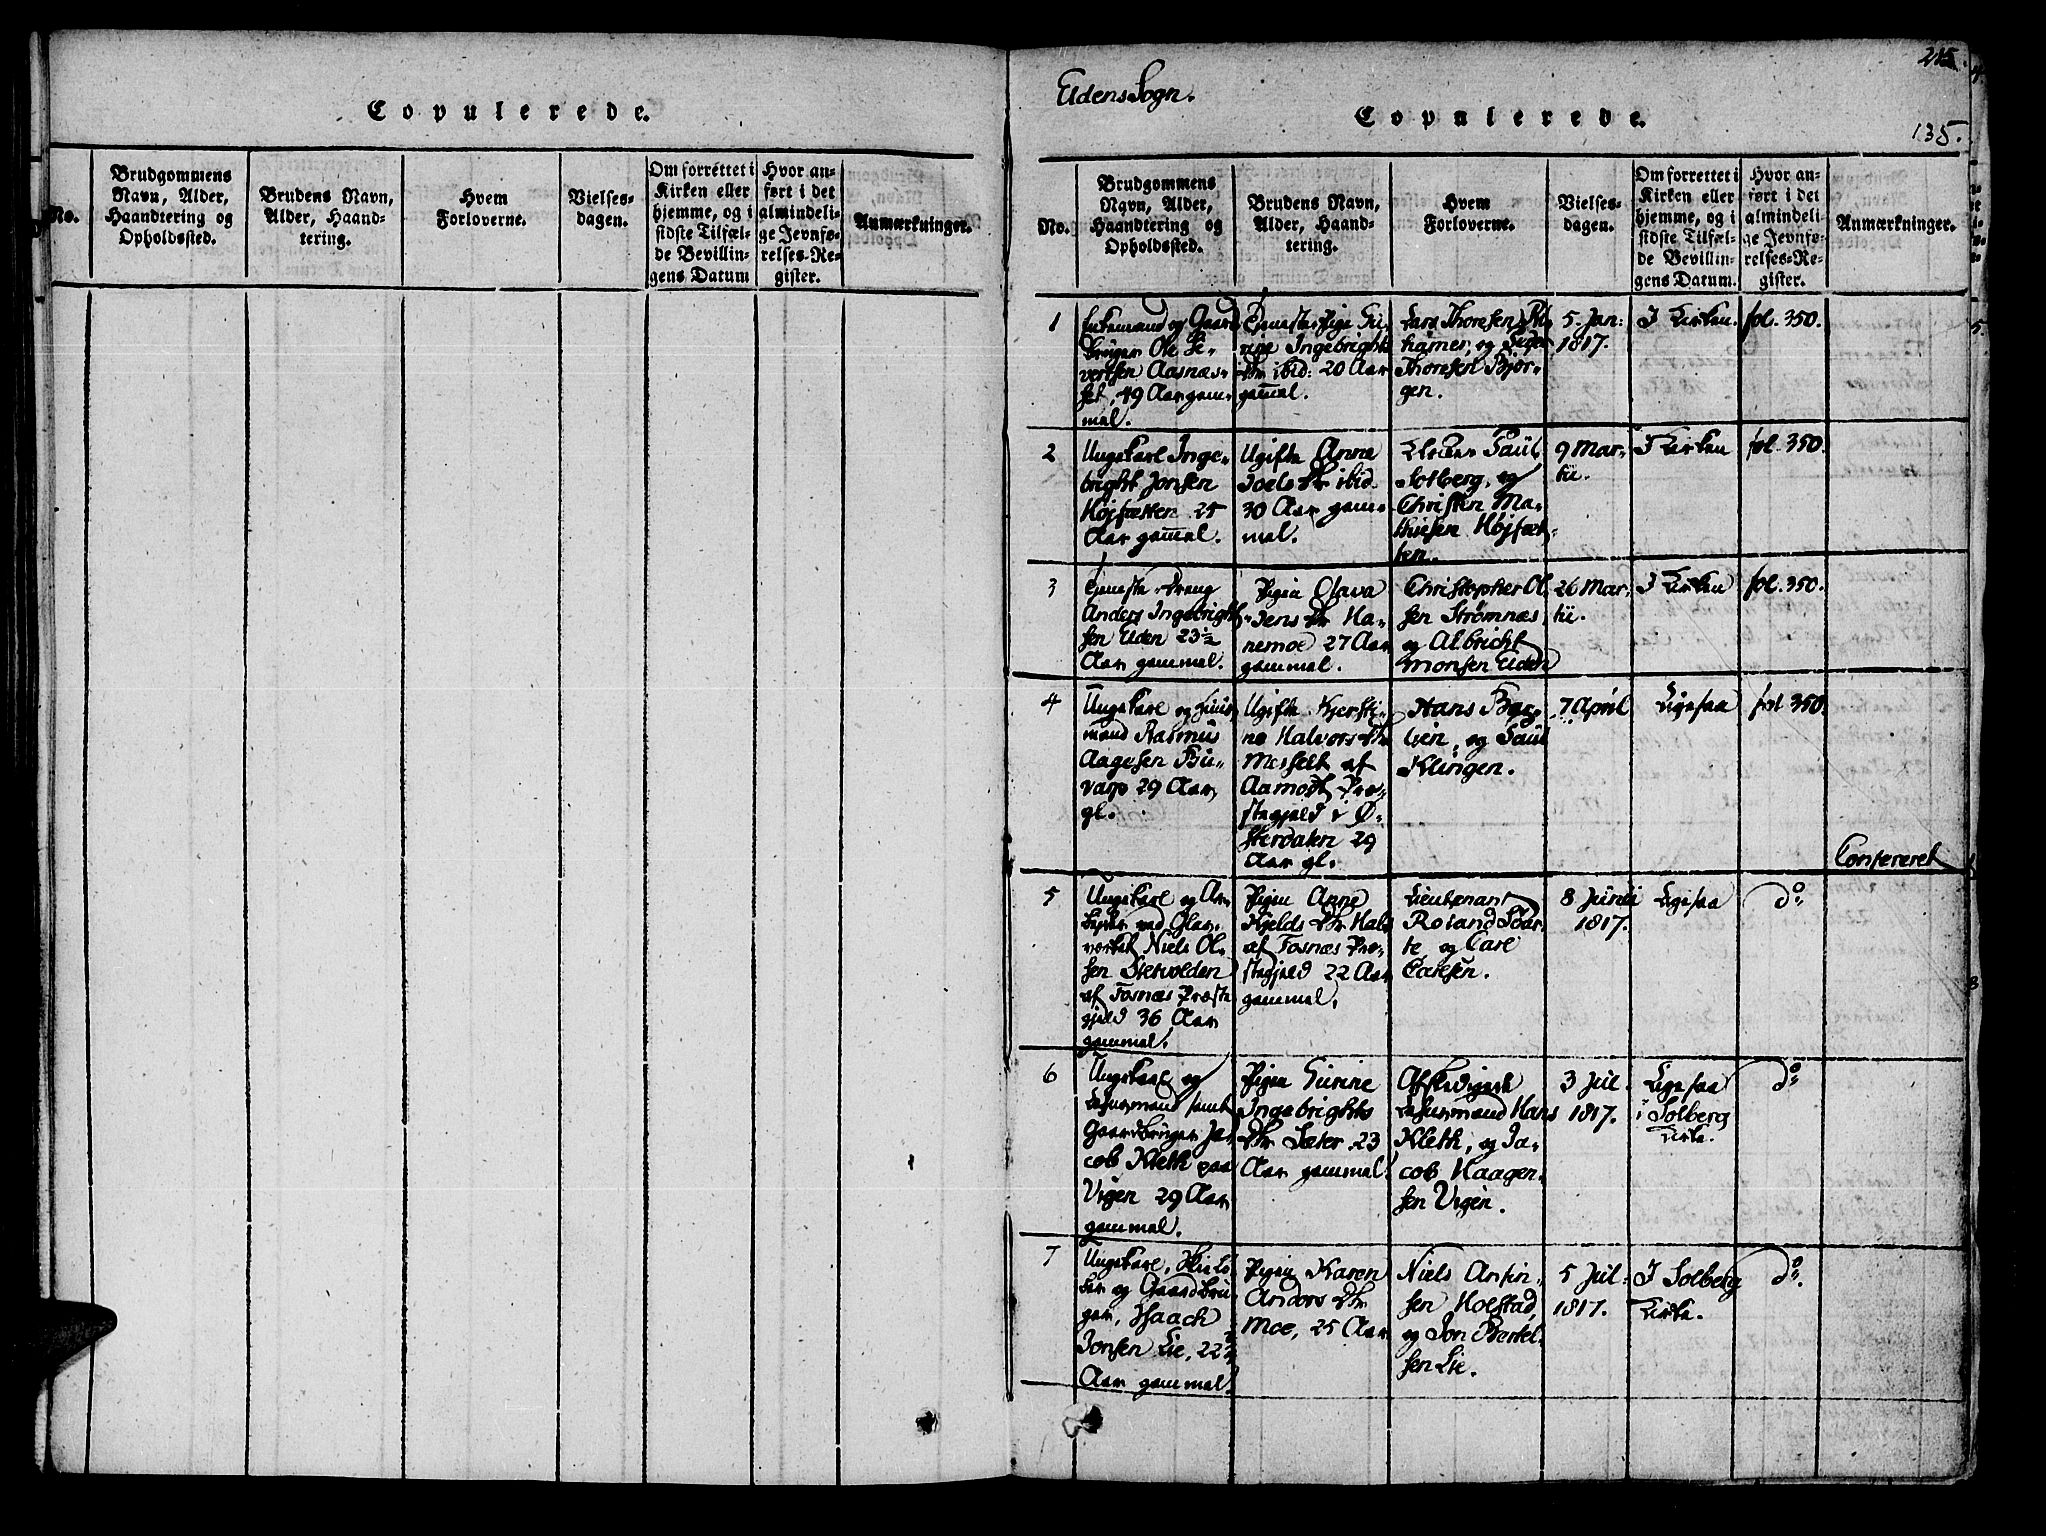 Copulerede.
No.
Brudgommens
Navn, Alder,
Haandtering og
Opholdssted.
Brudens Navn,
Alder, Haand-
tering.
Hvem
Forloverne.
Vielses-
dagen.
Om forrettet i
Kirken eller
hjemme, og i
sidste Tilfæl-
de Bevillin-
gens Datum
Hvor an-
ført i det
almindeli-
ge Jevnfø-
relses-Re-
gister.
Anmærkninger.
215.
Edens Sogn.
Copulerede.
135.
No.
Brudgommens
Navn, Alder,
Haandtering og
Opholdssted.
Brudens Navn,
Alder, Haand-
tering.
Hvem
Forloverne.
Vielses-
dagen.
Om forrettet i
Kirken eller
hjemme, og i
sidste Tilfæl-
de Bevillin-
gens Datum.
Hvor an-
ført i det
almindeli-
ge Jevnfø-
relses-Re-
gister.
Anmærkninger.
1
Enkemand og Gaard
bruger Ole Si-
vertsen Aasnæs-
set, 49 Aar gam-
mel.
Tjeneste Pige
Ingebrights
Dtr ibid: 20 Aar
gammel.
Lars Thoresen
og
Thoresen Bjør-
gen.
5. Jan:
1817.
I Kirken.
fol. 350.
2
Ungekarl Inge-
bright Jonsen
Højsætten 25
Aar gammel.
Ugifte Anne
Joels Dtr ibid.
30 Aar gam-
mel.
Paul
Solberg, og
Christen Ma-
thiesen Højsæt-
ten.
9 Mar-
tii.
I Kirken
fol. 350.
3
Tjeneste Dreng
Anders Ingebright
sen Eden 23½
Aar gammel.
Pigen Olava
Jens Dtr Ha-
nemoe 27 Aar
gammel.
Christopher Ol-
sen Strømnæs,
og Albricht
Monsen Eden
26 Mar-
tii.
I Kirken
fol. 350.
4
Ungekarl og Huus
mand Rasmus
Aagesen Bu-
varp 29 Aar
gl.
Ugifte Kjersti-
ne Halvors Dtr
Messelt af
Aamodt Præ-
stegjeld i Ø-
sterdalen 29
Aar gl.
Hans Bæk-
lien, og Paul
Klingen.
7 April
Ligesaa
fol 350.
Confereret
5
Ungekarl og Ar-
beider ved Glas-
værket Niels Ol-
sen
af Fosnæs Præste
gjeld 36 Aar
gammel.
Pigen Anne
Kjelds Dtr Hals
af Fosnæs Præ-
stegjeld 22 Aar
gammel.
Lieutenant
Roland Soar-
te og Carl
Carlsen.
8 Junii
1817.
Ligesaa
do
6
Ungekarl og
Lehnsmand samt
Gaardbruger Ja-
cob Kleth paa
Vigen 29 Aar
gammel.
Pigen Gurine
Ingebrights
Dtr Sæter 23
Aar gammel.
Afskediget
Lehnsmand Hans
Kleth, og Ja-
cob Haagen-
sen Vigen.
3 Jul.
1817.
Ligesaa
i Solberg
Kirke.
do
7
Ungekarl,
og Gaardbru-
ger, Isaach
Jonsen Lie, 22½
Aar gammel.
Pigen Karen
Andors Dtr
Moe, 25 Aar
Niels Anfin-
sen Holstad,
og Jon Bertel-
sen Lie.
5 Jul.
1817.
I Solberg
Kirke.
do.